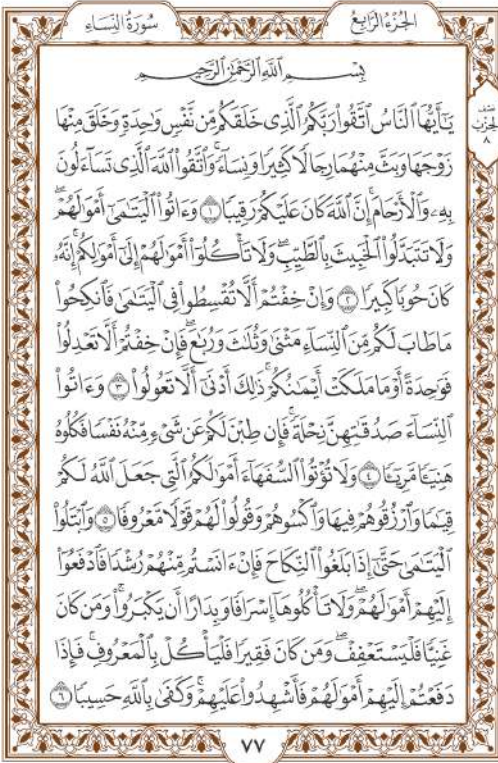 سُورَةُ النِّسَاءِ
الجُزْءُ الرَّابِعُ
بِسۡمِ ٱللَّهِ ٱلرَّحۡمَٰنِ ٱلرَّحِيمِ
نصف الحزب ٨
يَـٰٓأَيُّهَا ٱلنَّاسُ ٱتَّقُواْ رَبَّكُمُ ٱلَّذِي خَلَقَكُم مِّن نَّفۡسٖ وَٰحِدَةٖ وَخَلَقَ مِنۡهَا
زَوۡجَهَا وَبَثَّ مِنۡهُمَا رِجَالٗا كَثِيرٗا وَنِسَآءٗۚ وَٱتَّقُواْ ٱللَّهَ ٱلَّذِي تَسَآءَلُونَ
بِهِۦ وَٱلۡأَرۡحَامَۚ إِنَّ ٱللَّهَ كَانَ عَلَيۡكُمۡ رَقِيبٗا ١ وَءَاتُواْ ٱلۡيَتَٰمَىٰٓ أَمۡوَٰلَهُمۡۖ
وَلَا تَتَبَدَّلُواْ ٱلۡخَبِيثَ بِٱلطَّيِّبِۖ وَلَا تَأۡكُلُوٓاْ أَمۡوَٰلَهُمۡ إِلَىٰٓ أَمۡوَٰلِكُمۡۚ إِنَّهُۥ
كَانَ حُوبٗا كَبِيرٗا ٢ وَإِنۡ خِفۡتُمۡ أَلَّا تُقۡسِطُواْ فِي ٱلۡيَتَٰمَىٰ فَٱنكِحُواْ
مَا طَابَ لَكُم مِّنَ ٱلنِّسَآءِ مَثۡنَىٰ وَثُلَٰثَ وَرُبَٰعَۖ فَإِنۡ خِفۡتُمۡ أَلَّا تَعۡدِلُواْ
فَوَٰحِدَةً أَوۡ مَا مَلَكَتۡ أَيۡمَٰنُكُمۡۚ ذَٰلِكَ أَدۡنَىٰٓ أَلَّا تَعُولُواْ ٣ وَءَاتُواْ
ٱلنِّسَآءَ صَدُقَٰتِهِنَّ نِحۡلَةٗۚ فَإِن طِبۡنَ لَكُمۡ عَن شَيۡءٖ مِّنۡهُ نَفۡسٗا فَكُلُوهُ
هَنِيٓـٔٗا مَّرِيٓـٔٗا ٤ وَلَا تُؤۡتُواْ ٱلسُّفَهَآءَ أَمۡوَٰلَكُمُ ٱلَّتِي جَعَلَ ٱللَّهُ لَكُمۡ
قِيَٰمٗا وَٱرۡزُقُوهُمۡ فِيهَا وَٱكۡسُوهُمۡ وَقُولُواْ لَهُمۡ قَوۡلٗا مَّعۡرُوفٗا ٥ وَٱبۡتَلُواْ
ٱلۡيَتَٰمَىٰ حَتَّىٰٓ إِذَا بَلَغُواْ ٱلنِّكَاحَ فَإِنۡ ءَانَسۡتُم مِّنۡهُمۡ رُشۡدٗا فَٱدۡفَعُوٓاْ
إِلَيۡهِمۡ أَمۡوَٰلَهُمۡۖ وَلَا تَأۡكُلُوهَآ إِسۡرَافٗا وَبِدَارًا أَن يَكۡبَرُواْۚ وَمَن كَانَ
غَنِيّٗا فَلۡيَسۡتَعۡفِفۡۖ وَمَن كَانَ فَقِيرٗا فَلۡيَأۡكُلۡ بِٱلۡمَعۡرُوفِۚ فَإِذَا
دَفَعۡتُمۡ إِلَيۡهِمۡ أَمۡوَٰلَهُمۡ فَأَشۡهِدُواْ عَلَيۡهِمۡۚ وَكَفَىٰ بِٱللَّهِ حَسِيبٗا ٦
٧٧